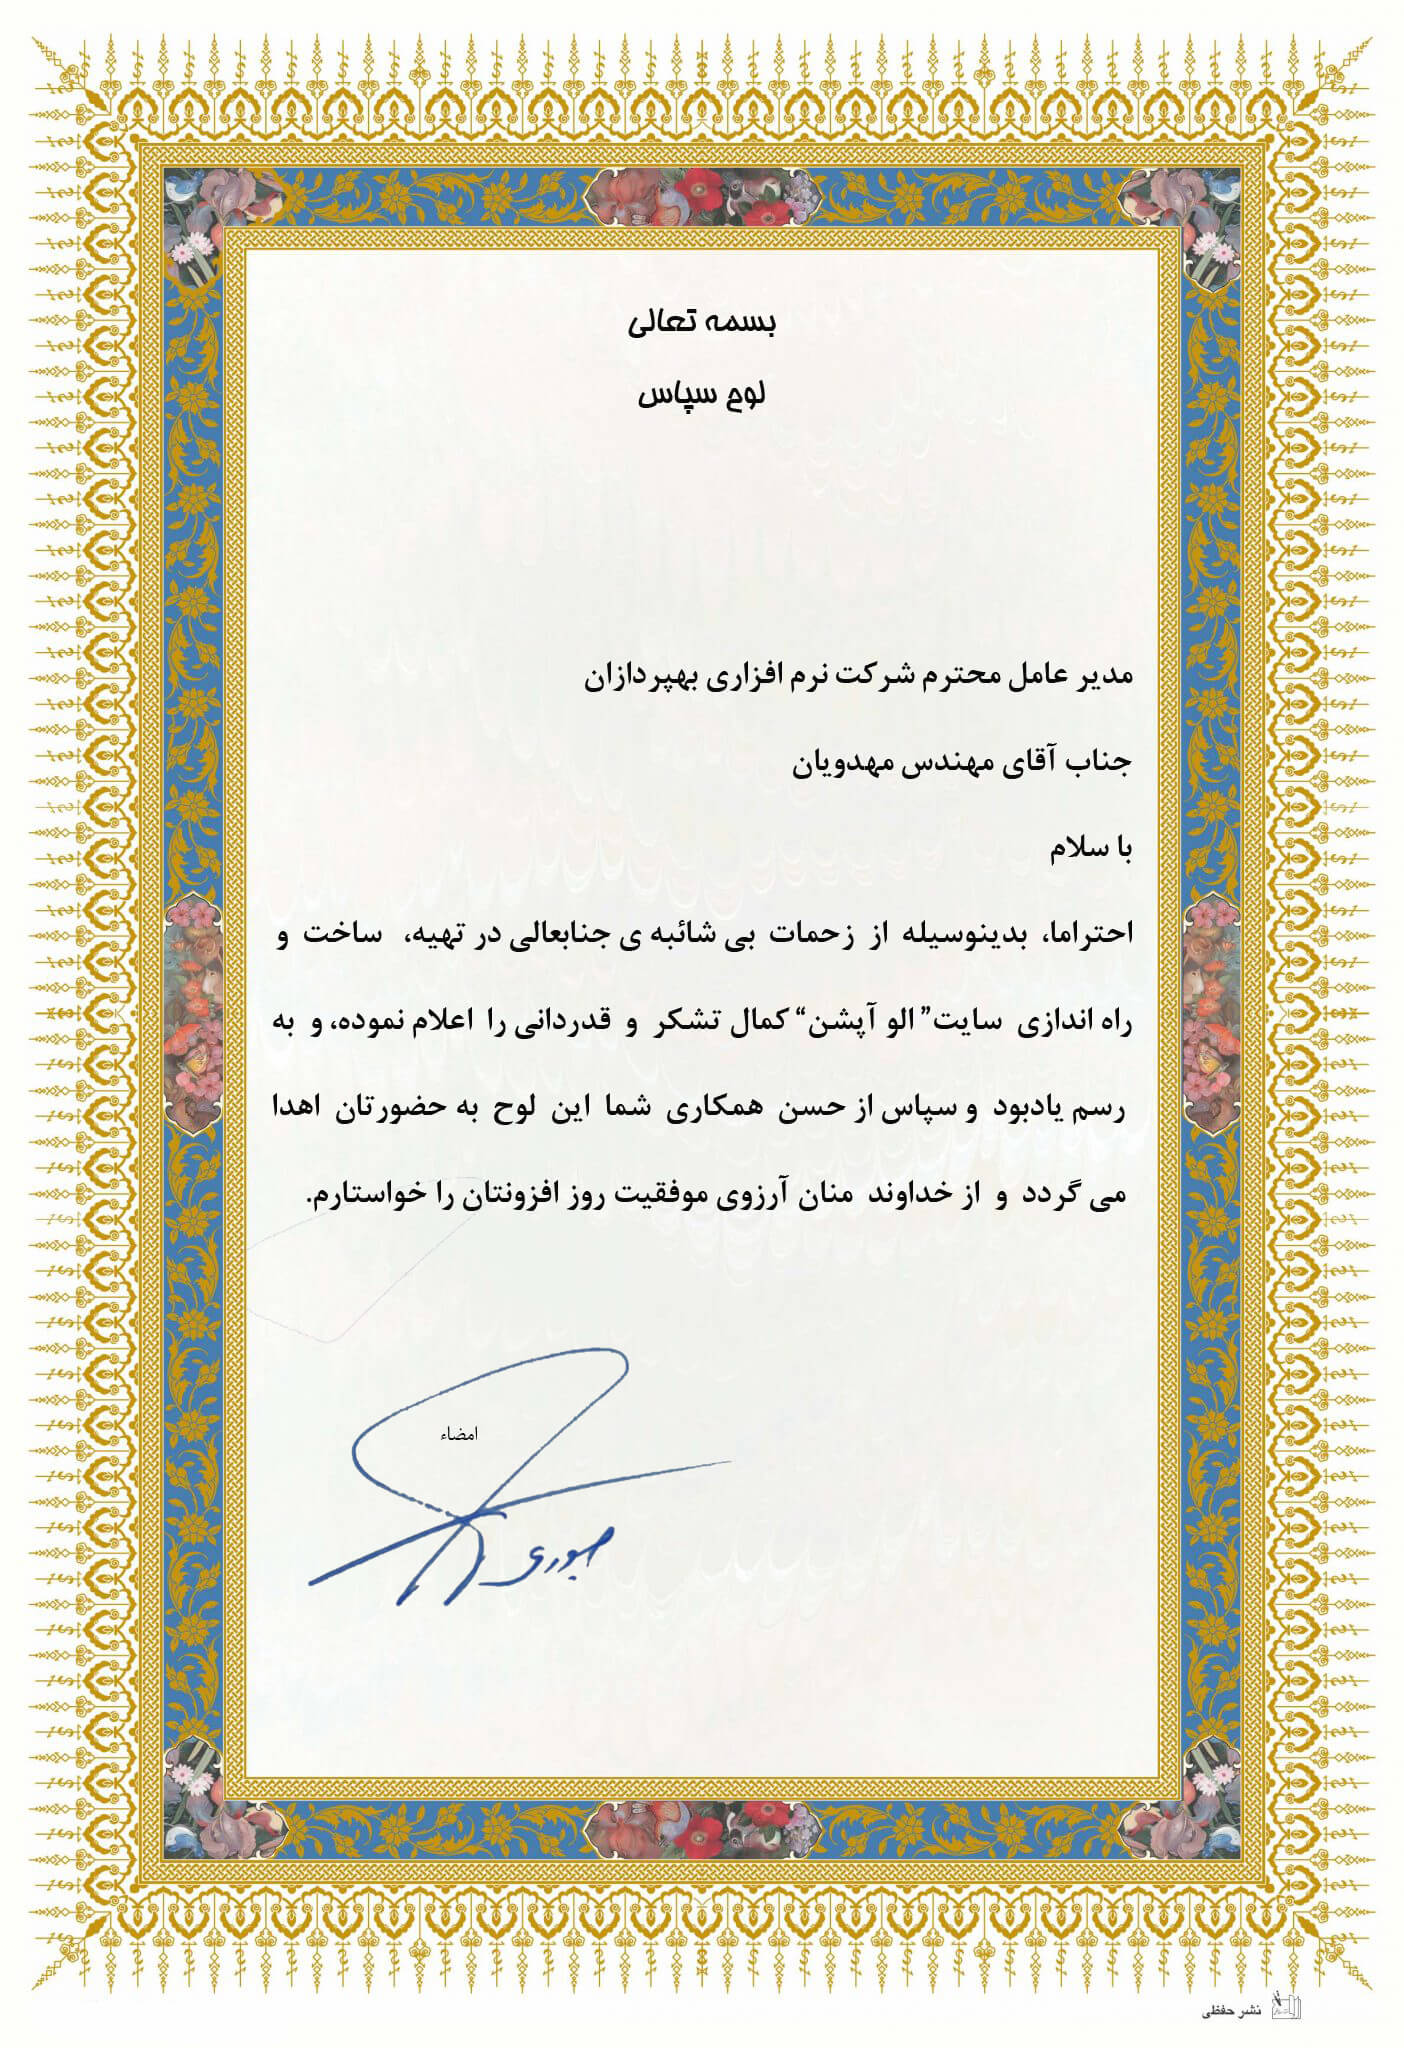 بسمه تعالی
لوح سپاس
مدیر عامل محترم شرکت نرم افزاری بهپردازان
جناب آقای مهندس مهدویان
با سلام
احتراما، بدینوسیله از زحمات بی شائبه ی جنابعالی در تهیه، ساخت و
راه اندازی سایت” الو آپشن“ کمال تشکر و قدردانی را اعلام نموده، و به
رسم یادبود و سپاس از حسن همکاری شما این لوح به حضورتان اهدا
می گردد و از خداوند منان آرزوی موفقیت روز افزونتان را خواستارم.
امضاء
صبوری
نشر حفظی